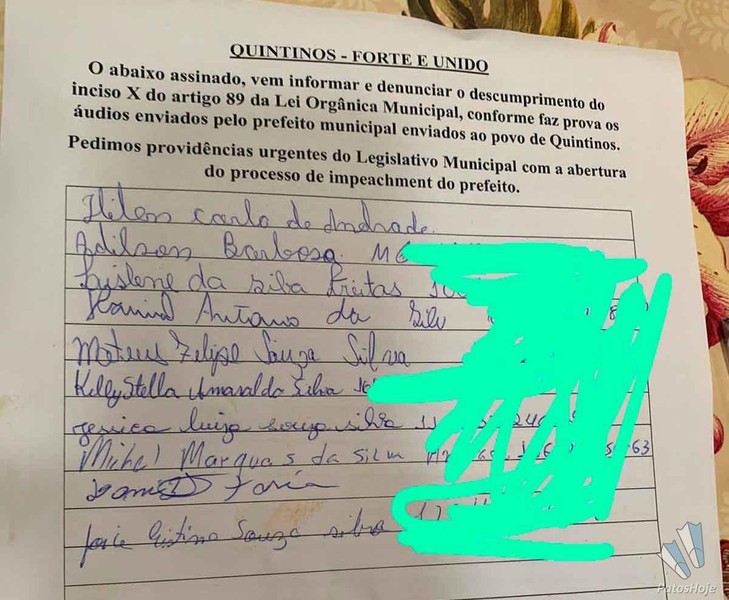 QUINTINOS - FORTE E UNIDO
O abaixo assinado, vem informar e denunciar o descumprimento do
inciso X do artigo 89 da Lei Orgânica Municipal, conforme faz prova os
áudios enviados pelo prefeito municipal enviados ao povo de Quintinos.
Pedimos providências urgentes do Legislativo Municipal com a abertura
do processo de impeachment do prefeito.
carlo de Andrade
Adilson Barbosa MG
da Silba Freitas
Antonio da Silv
Mateus Felipe Souza Silva
Kelly Stella Amaral da Silva
Jessica luiza souza silva
Michel Marques da Silva 63
Faria
Cristina Souza silva
PatosHoje